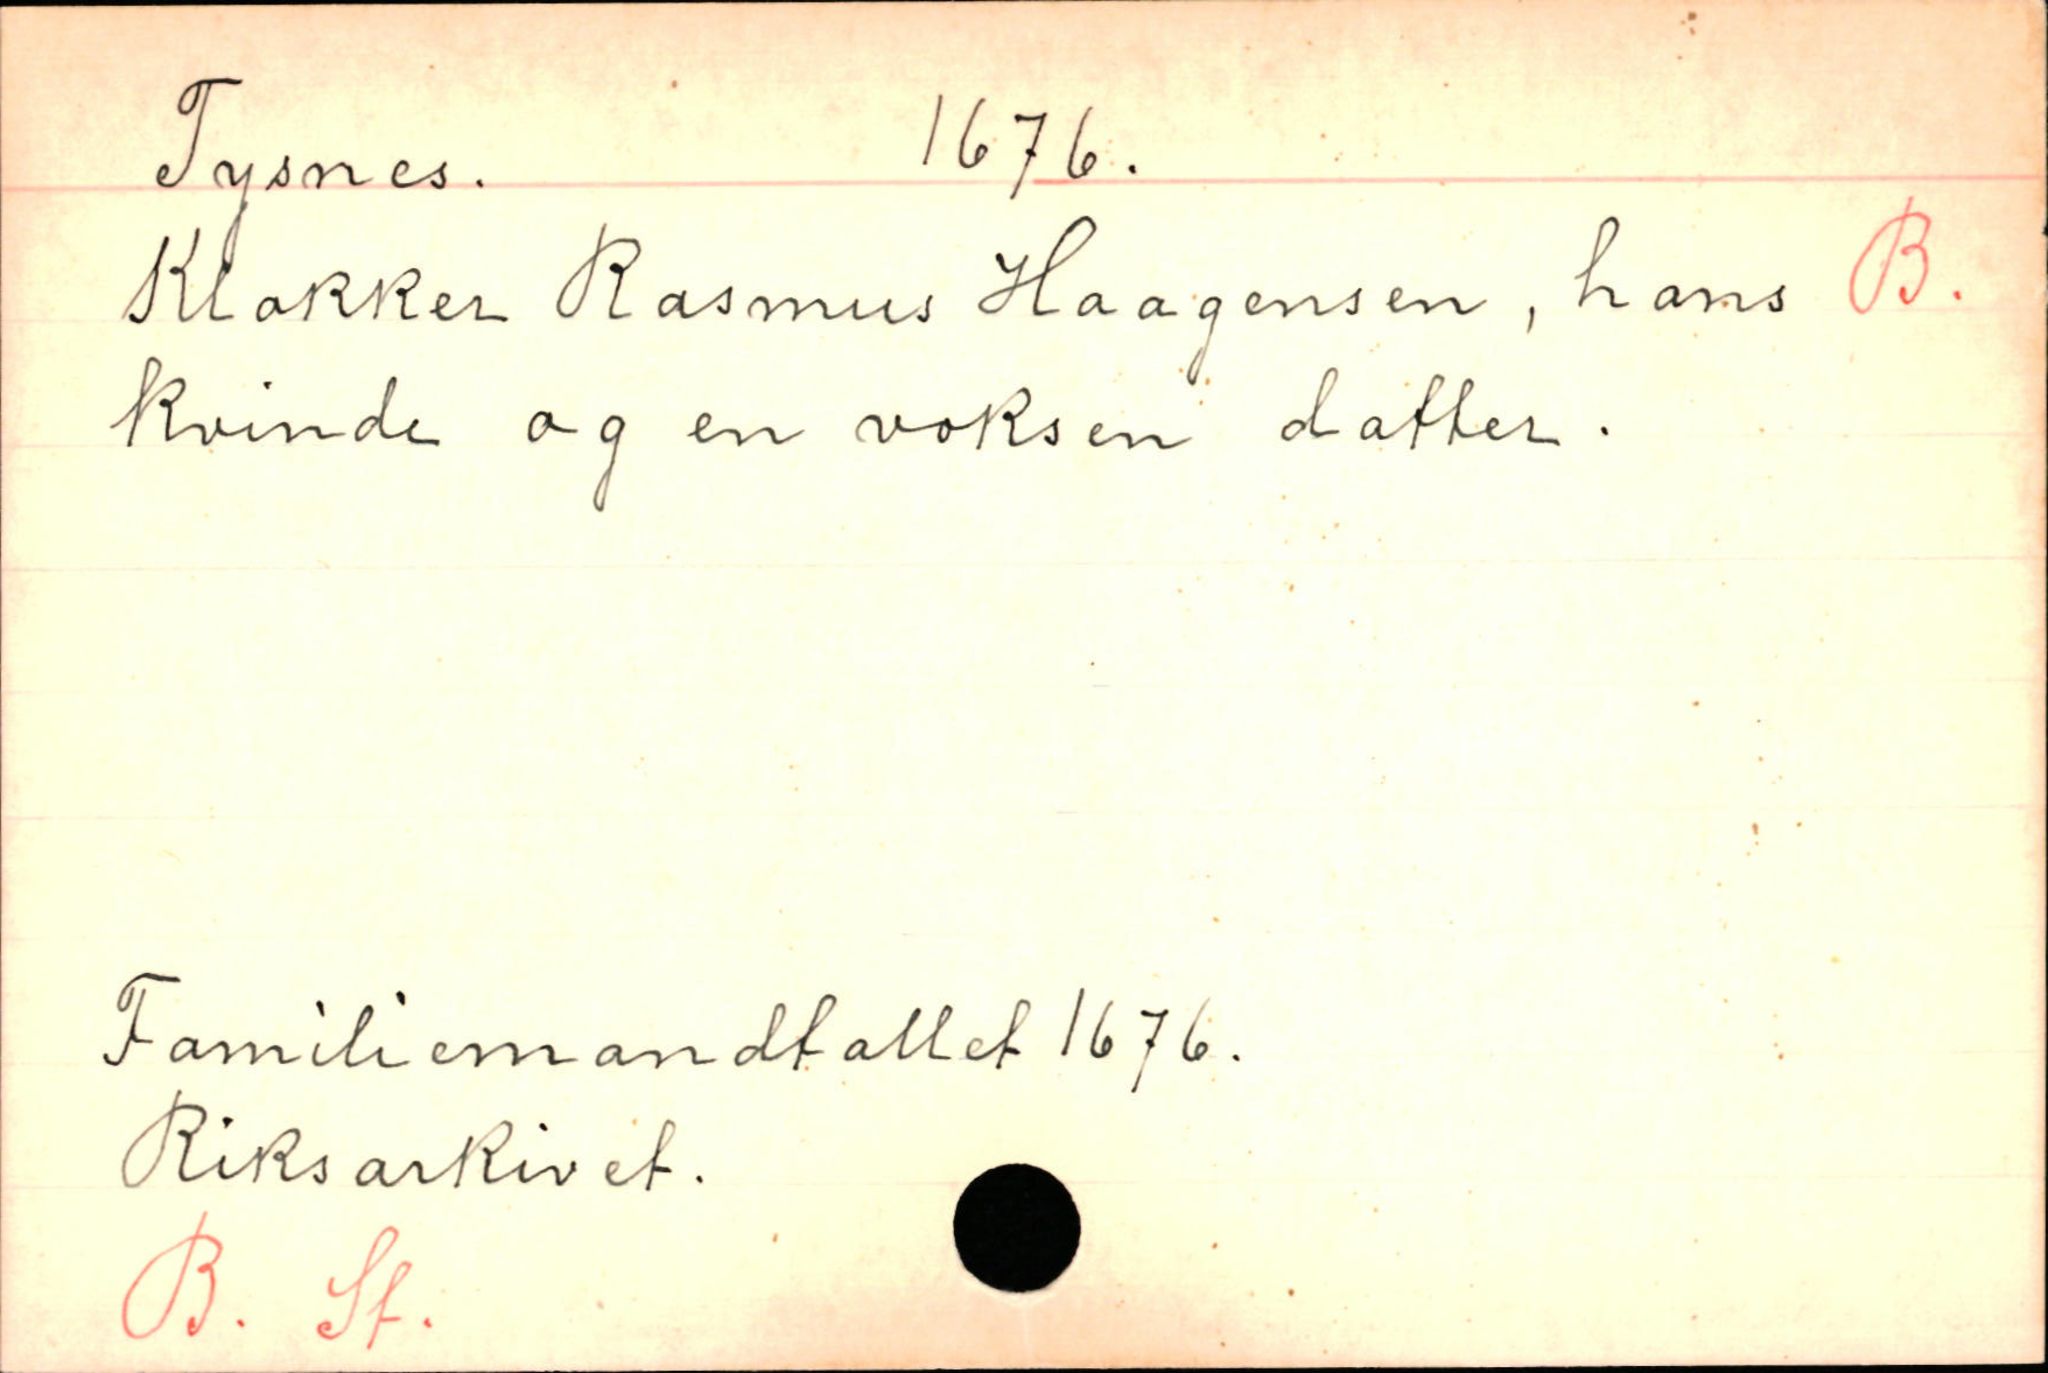 Tysnes. 1676.
Klokker Rasmus Haagensen, hans B.
kvinde og en voksen datter.
Familiemandtallet 1676.
Riksarkivet.
B. St.